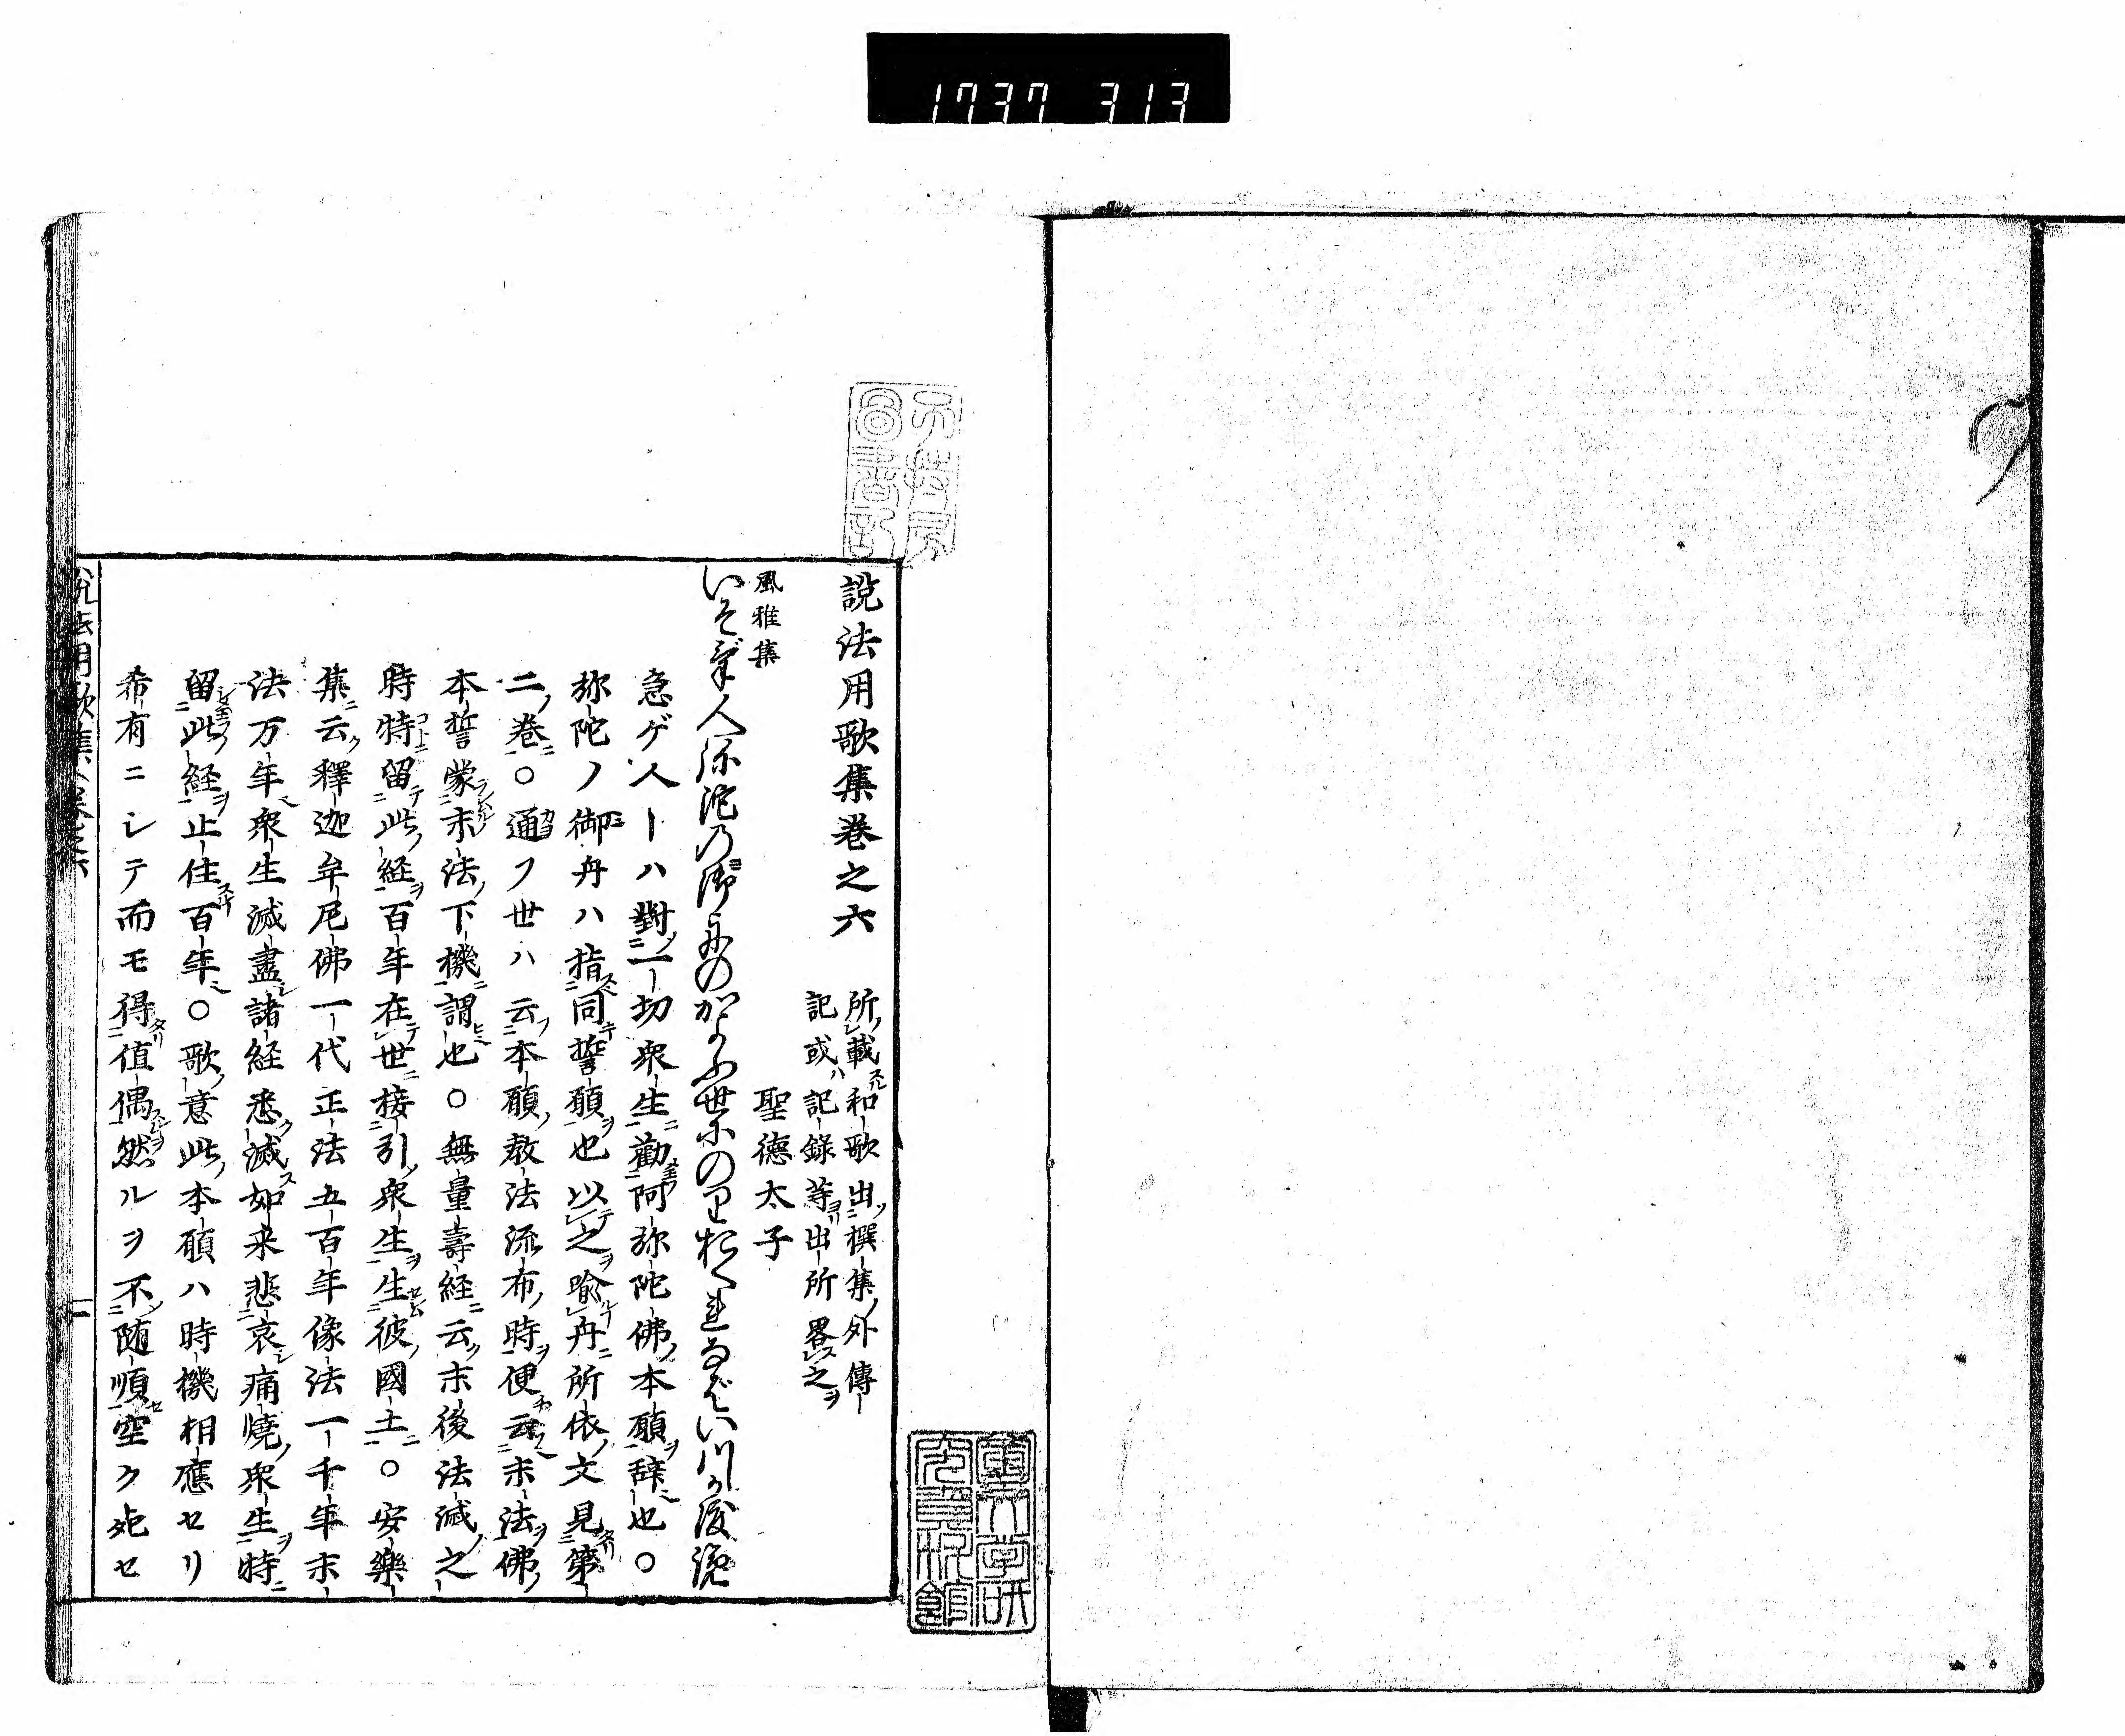 1737 313
説法用歌集巻之六
所載和歌出撰集外傳
記或ハ記録等出所畧之
風雅集
聖德太子
いそげ人弥陀の御舟のかよふ世にのりおくれなばいつか渡らん
急ゲ人ーハ對一切衆生勸阿弥陀佛本願辞也○
弥陀ノ御舟ハ指同誓願也以之喩舟所依文見第
二巻○通フ世ハ云本願教法流布時便云末法佛
本誓蒙末法下機謂也○無量壽経云末後法滅之
時特留此経百年在世接引衆生生彼國土○安樂
集云釋迦牟尼佛一代正法五百年像法一千年末
法万年衆生滅盡諸経悉滅如来悲哀痛燒衆生特
留此経止住百年○歌意此本願ハ時機相應セリ
希有ニシテ而モ得値偶然ルヲ不随順空ク死セ
説法用歌集巻之六